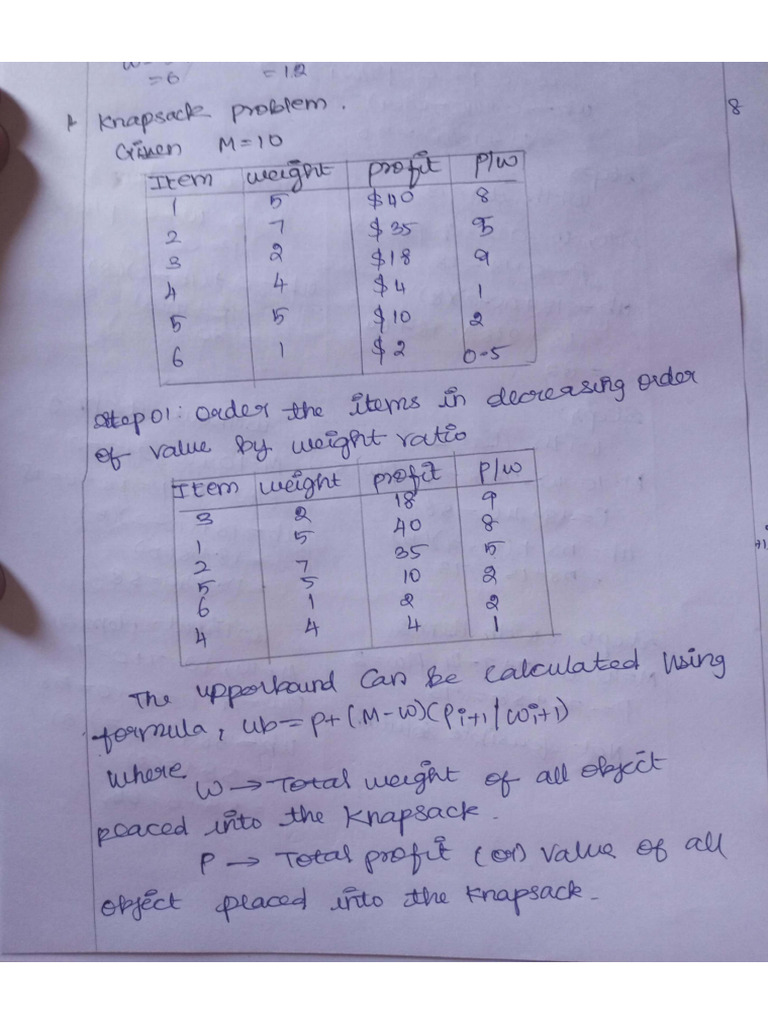 =6 =12
8
Knapsack problem.
Given M=10
Item weight profit P/W
1 5 $40 8
2 7 $35 5
3 2 $18 9
4 4 $4 1
5 5 $10 2
6 1 $2 0.5
Step 01: Order the items in decreasing order
of value by weight ratio
Item weight profit P/W
3 2 18 9
1 5 40 8
2 7 35 5
5 5 10 2
6 1 2 2
4 4 4 1
The upperbound can be calculated using
formula, ub=P+(M-W)(Pi+1/Wi+1)
where
W→Total weight of all object
placed into the knapsack.
P → Total profit (or) value of all
object placed into the knapsack.